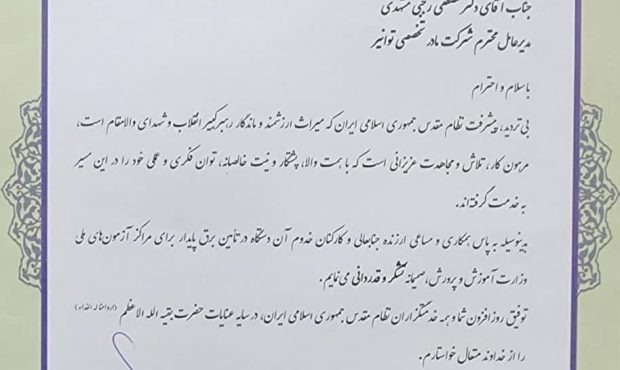 جناب آقای دکتر مصطفی رجبی مشهدی
مدیرعامل محترم شرکت مادر تخصصی توانیر
باسلام و احترام
بی تردید، پیشرفت نظام مقدس جمهوری اسلامی ایران که میراث ارزشمند و ماندگار رهبر کبیر انقلاب و شهدای والامقام است،
مرهون کار، تلاش و مجاهدت عزیزانی است که با همت والا، پشتکار و نیت خالصانه، توان فکری و عملی خود را در این مسیر
به خدمت گرفته‌اند.
بدینوسیله به پاس همکاری و مساعی ارزنده جنابعالی و کارکنان خدوم آن دستگاه در تأمین برق پایدار برای مراکز آزمون‌های ملی
وزارت آموزش و پرورش، صمیمانه تشکر و قدردانی می‌نمایم.
توفیق روزافزون شما و همه خدمتگزاران نظام مقدس جمهوری اسلامی ایران، در سایه عنایات حضرت بقیه الله الاعظم (ارواحنا له الفداء)
را از خداوند متعال خواستارم.